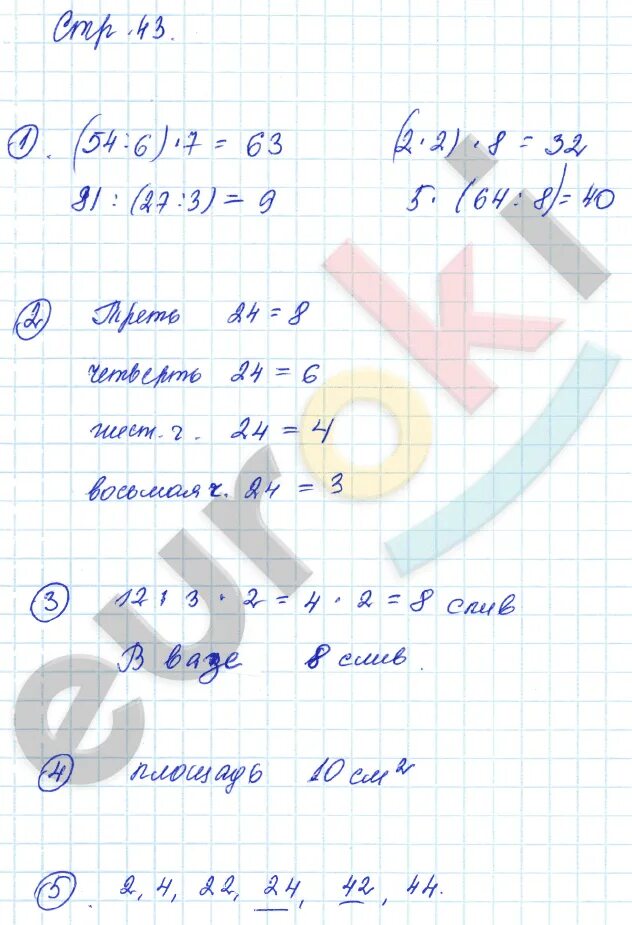 Стр. 43.
1. (54:6)·7 = 63 (2·2)·8 = 32
81:(27:3) = 9 5·(64:8) = 40
2 Треть 24 = 8
четверть 24 = 6
шест. ч. 24 = 4
восьмая ч. 24 = 3
3 12:3·2 = 4·2 = 8 слив
В вазе 8 слив.
4 площадь 10 см²
5. 2, 4, 22, 24, 42, 44.
euroki